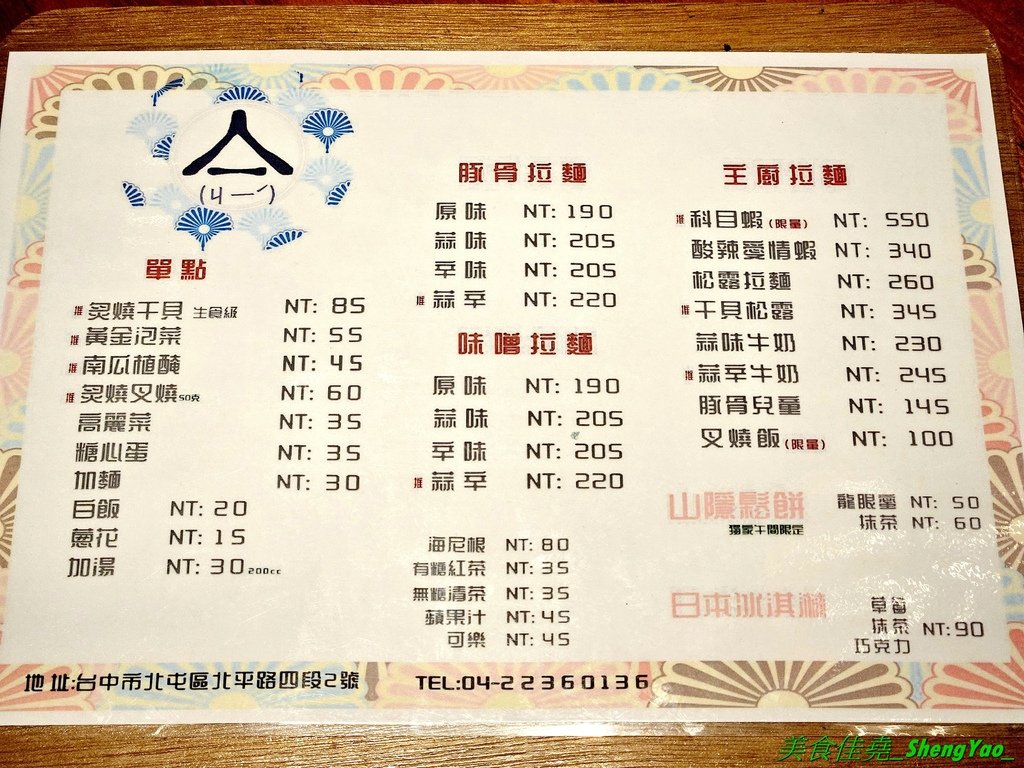 亼
(ㄐㄧˊ)
單點
推 炙燒干貝 生食級 NT: 85
推 黃金泡菜 NT: 55
推 南瓜植醃 NT: 45
推 炙燒叉燒 50克 NT: 60
高麗菜 NT: 35
糖心蛋 NT: 35
加麵 NT: 30
白飯 NT: 20
蔥花 NT: 15
加湯 NT: 30 200cc
豚骨拉麵
原味 NT: 190
蒜味 NT: 205
辛味 NT: 205
推 蒜辛 NT: 220
味噌拉麵
原味 NT: 190
蒜味 NT: 205
辛味 NT: 205
推 蒜辛 NT: 220
海尼根 NT: 80
有糖紅茶 NT: 35
無糖清茶 NT: 35
蘋果汁 NT: 45
可樂 NT: 45
主廚拉麵
推 科目蝦(限量) NT: 550
酸辣愛情蝦 NT: 340
松露拉麵 NT: 260
推 干貝松露 NT: 345
蒜味牛奶 NT: 230
推 蒜辛牛奶 NT: 245
豚骨兒童 NT: 145
叉燒飯(限量) NT: 100
山隱鬆餅
獨家午間限定
龍眼蜜 NT: 50
抹茶 NT: 60
日本冰淇淋
草莓
抹茶 NT: 90
巧克力
地址:台中市北屯區北平路四段2號
TEL:04-22360136
美食佳堯_ShengYao_